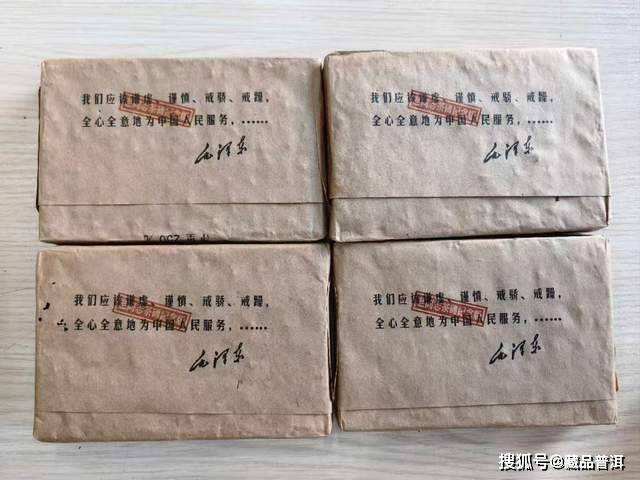 我们应该谦虚、谨慎、戒骄、戒躁，
全心全意地为中国人民服务，……
毛泽东
我们应该谦虚、谨慎、戒骄、戒躁，
全心全意地为中国人民服务，……
毛泽东
我们应该谦虚、谨慎、戒骄、戒躁，
全心全意地为中国人民服务，……
毛泽东
我们应该谦虚、谨慎、戒骄、戒躁，
全心全意地为中国人民服务，……
毛泽东
搜狐号@藏品普洱